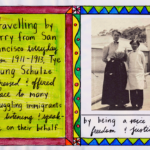 ravelling by
rry from San
ancisco everyday
om 1911-1913, Tye
ung Schulze
and offered
ace to many
uggling immigrants
listening & speak-
on their behalf
by being a voice
freedom & justice